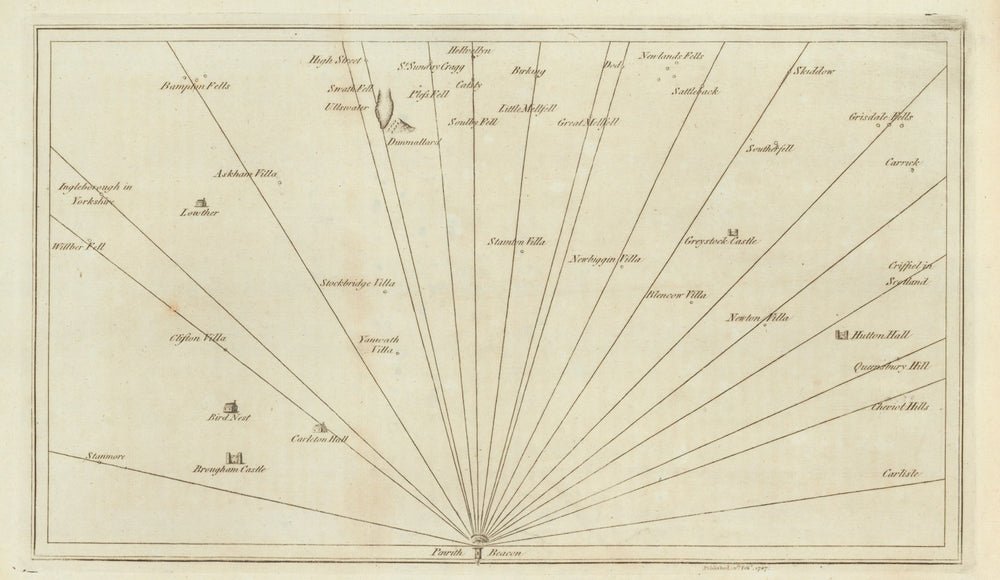 Hellvellyn
High Street
St Sunday Cragg
Newlands Fells
Dod
Birking
Skiddow
Bampton Fells
Swath Fell
Calsty
Place Fell
Sattleback
Ullswater
Little Mellfell
Soulby Fell
Great Mellfell
Grisdale Fells
Dunmallard
Southerfell
Carrick
Askham Villa
Ingleborough in
Yorkshire
Lowther
Willber Fell
Stainton Villa
Greystock Castle
Newbiggin Villa
Criffiel in
Scotland
Stockbridge Villa
Blencow Villa
Newton Villa
Clifton Villa
Yanwath
Villa
Hutton Hall
Queensbury Hill
Cheviot Hills
Bird Nest
Carleton Hall
Stanmore
Brougham Castle
Carlisle
Penrith Beacon
Published 10th Feby. 1787.